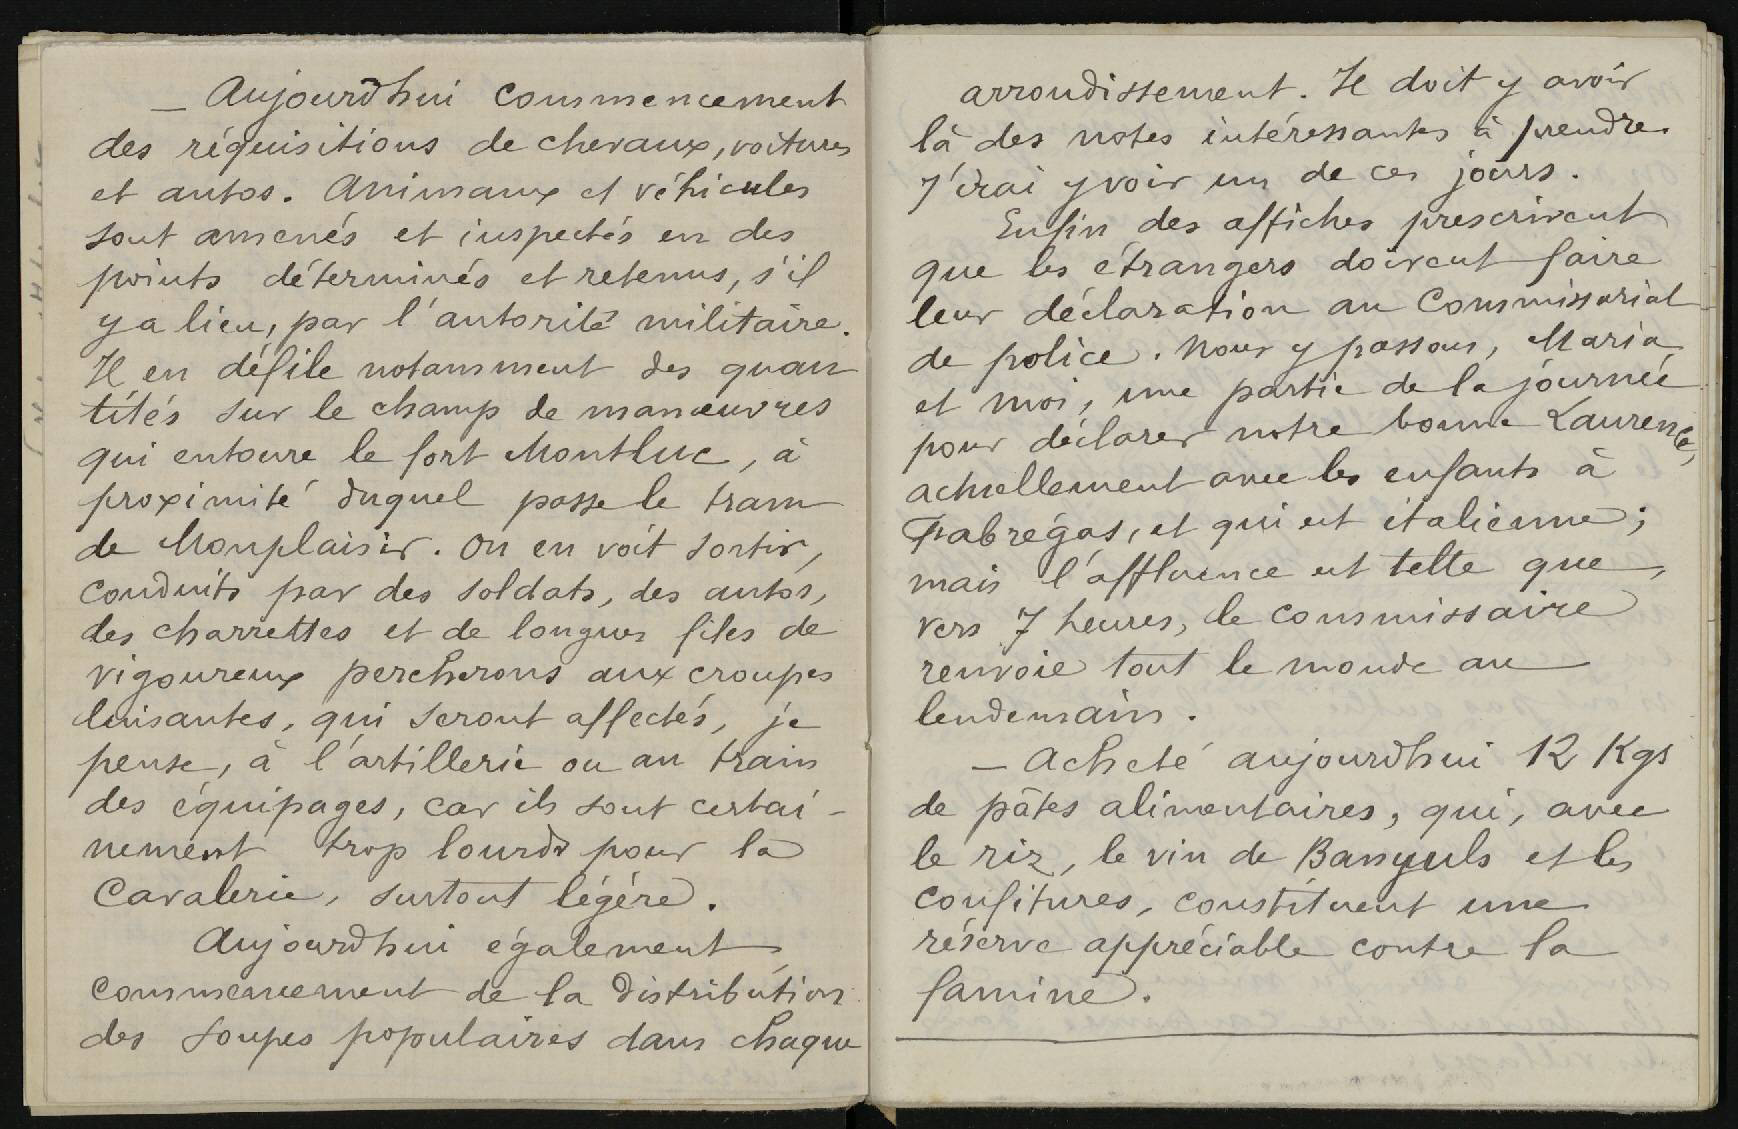 — Aujourd'hui commencement
des réquisitions de chevaux, voitures
et autos. Animaux et véhicules
sont amenés et inspectés en des
points déterminés et retenus, s'il
y a lieu, par l'autorité militaire.
Il en défile notamment des quan
tités sur le champ de manœuvres
qui entoure le fort Montluc, à
proximité duquel passe le tram
de Monplaisir. On en voit sortir,
conduits par des soldats, des autos,
des charrettes et de longues files de
vigoureux percherons aux croupes
luisantes, qui seront affectés, je
pense, à l'artillerie ou au train
des équipages, car ils sont certai-
nement trop lourds pour la
Cavalerie, surtout légère.
Aujourd'hui également,
commencement de la distribution
des soupes populaires dans chaque
arrondissement. Il doit y avoir
là des notes intéressantes à prendre.
J'irai y voir un de ces jours.
Enfin des affiches prescrivent
que les étrangers doivent faire
leur déclaration au Commissariat
de police. Nous y passons, Maria
et moi, une partie de la journée
pour déclarer notre bonne Laurence,
actuellement avec les enfants à
Fabrégas, et qui est italienne ;
mais l'affluence est telle que,
vers 7 heures, le commissaire
renvoie tout le monde au
lendemain.
— Acheté aujourd'hui 12 Kgs
de pâtes alimentaires, qui, avec
le riz, le vin de Banyuls et les
confitures, constituent une
réserve appréciable contre la
famine.